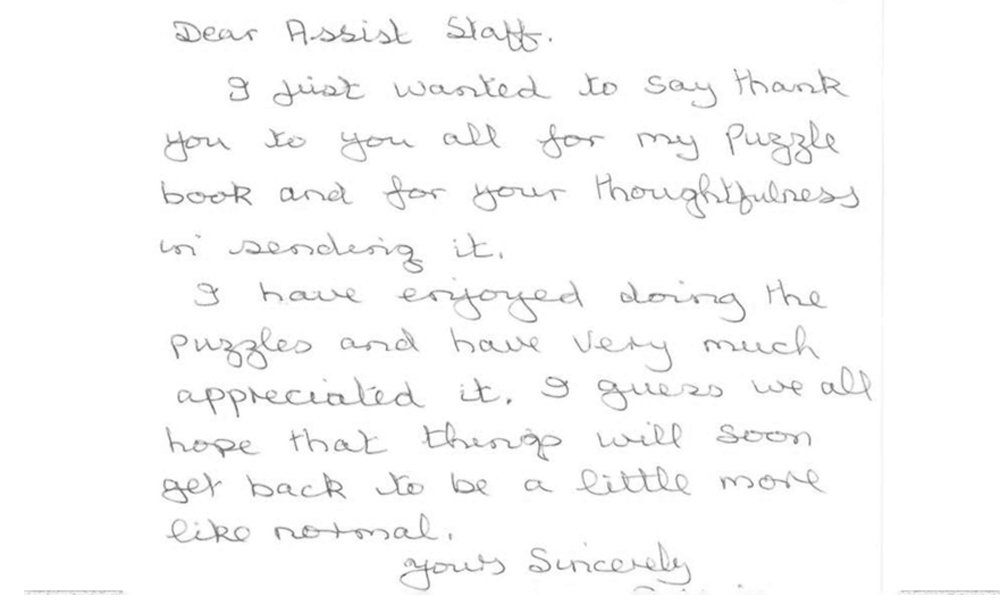 Dear Assist Staff.
I just wanted to say thank
you to you all for my puzzle
book and for your thoughtfulness
in sending it.
I have enjoyed doing the
puzzles and have very much
appreciated it. I guess we all
hope that things will soon
get back to be a little more
like normal.
Yours Sincerely